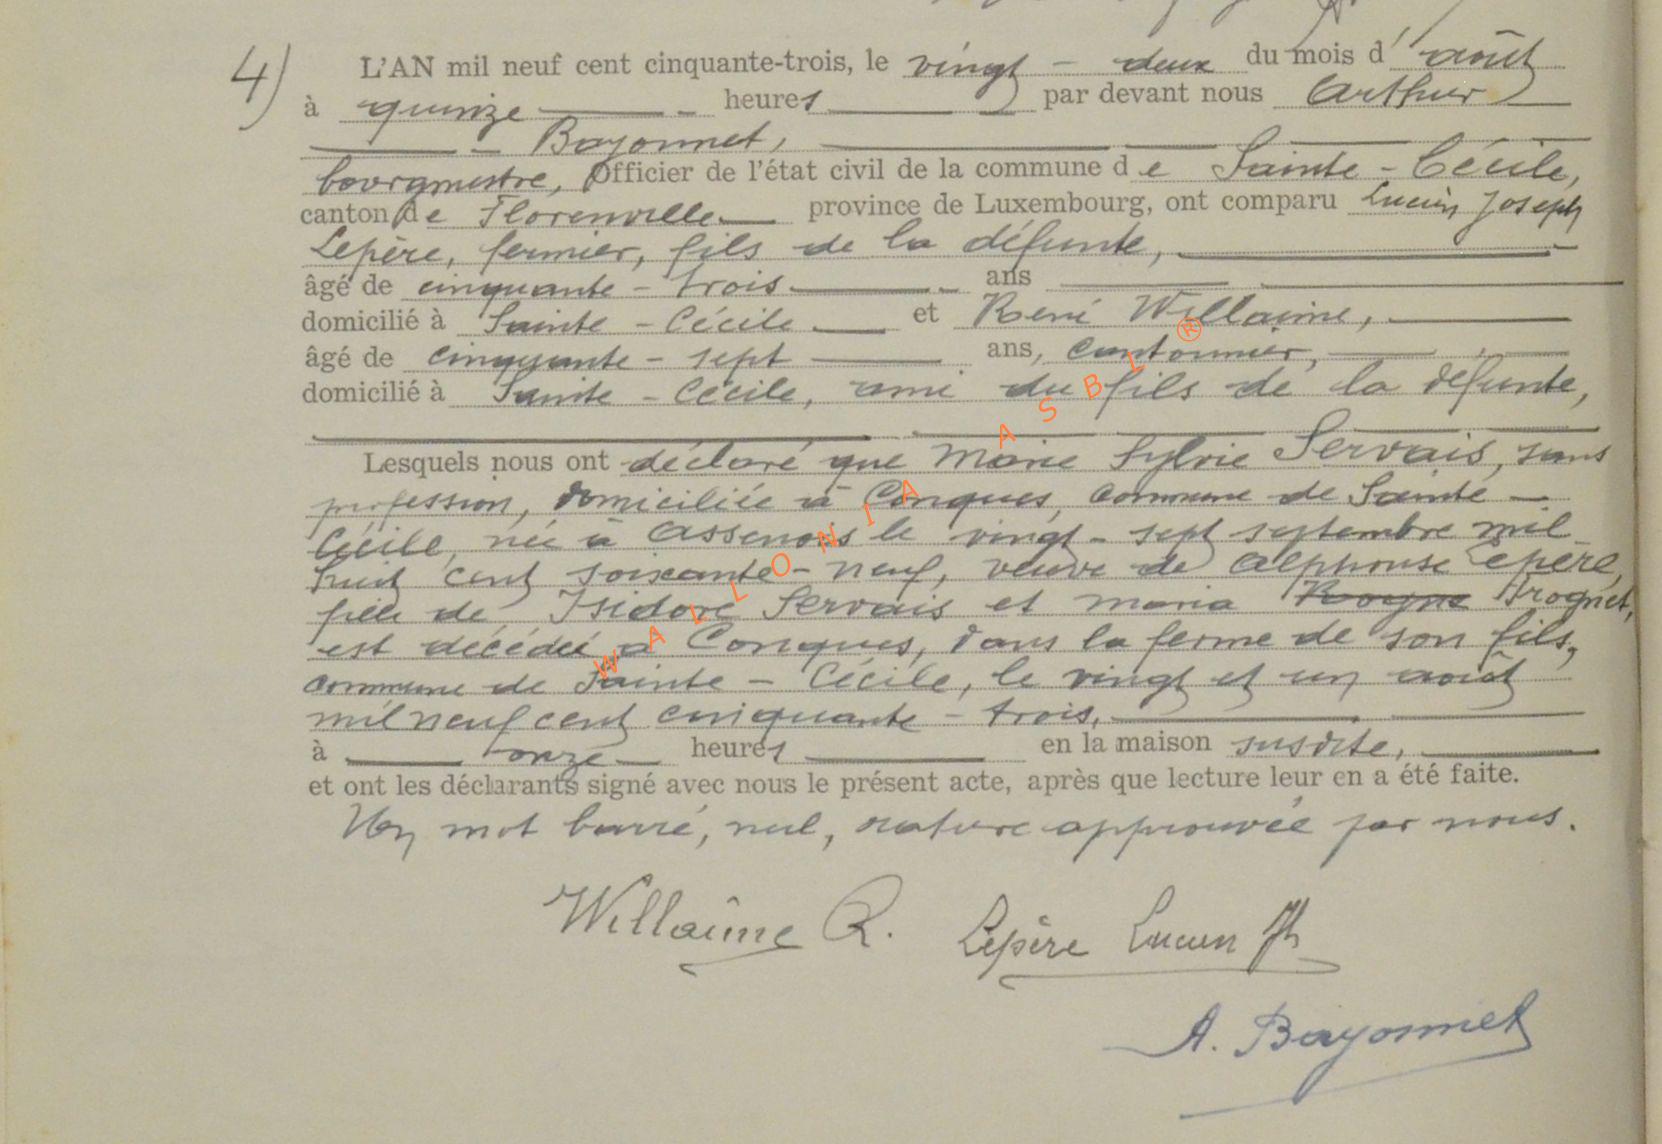 4) L'AN mil neuf cent cinquante-trois, le vingt - deux du mois d'août
à quinze heures par devant nous Arthur
Bayonnet,
bourgmestre, Officier de l'état civil de la commune de Sainte - Cécile,
canton de Florenville province de Luxembourg, ont comparu Lucien Joseph
Lepère, fermier, fils de la défunte,
âgé de cinquante - trois ans
domicilié à Sainte - Cécile et René Willaime,
âgé de cinquante - sept ans, cantonnier,
domicilié à Sainte - Cécile, ami du fils de la défunte,
Lesquels nous ont déclaré que Marie Sylvie Servais, sans
profession, domiciliée à Conques, commune de Sainte -
Cécile, née à Assenois le vingt - sept septembre mil
huit cent soixante - neuf, veuve de Alphonse Lepère,
fille de Isidore Servais et Maria Trognet,
est décédée à Conques, dans la ferme de son fils,
commune de Sainte - Cécile, le vingt et un août
mil neuf cent cinquante - trois,
à onze heures en la maison susdite,
et ont les déclarants signé avec nous le présent acte, après que lecture leur en a été faite.
Un mot barré, nul, rature approuvée par nous.
Willaime R. Lepère Lucien Jh
A. Bayonnet
WALLONIA ASBL ®